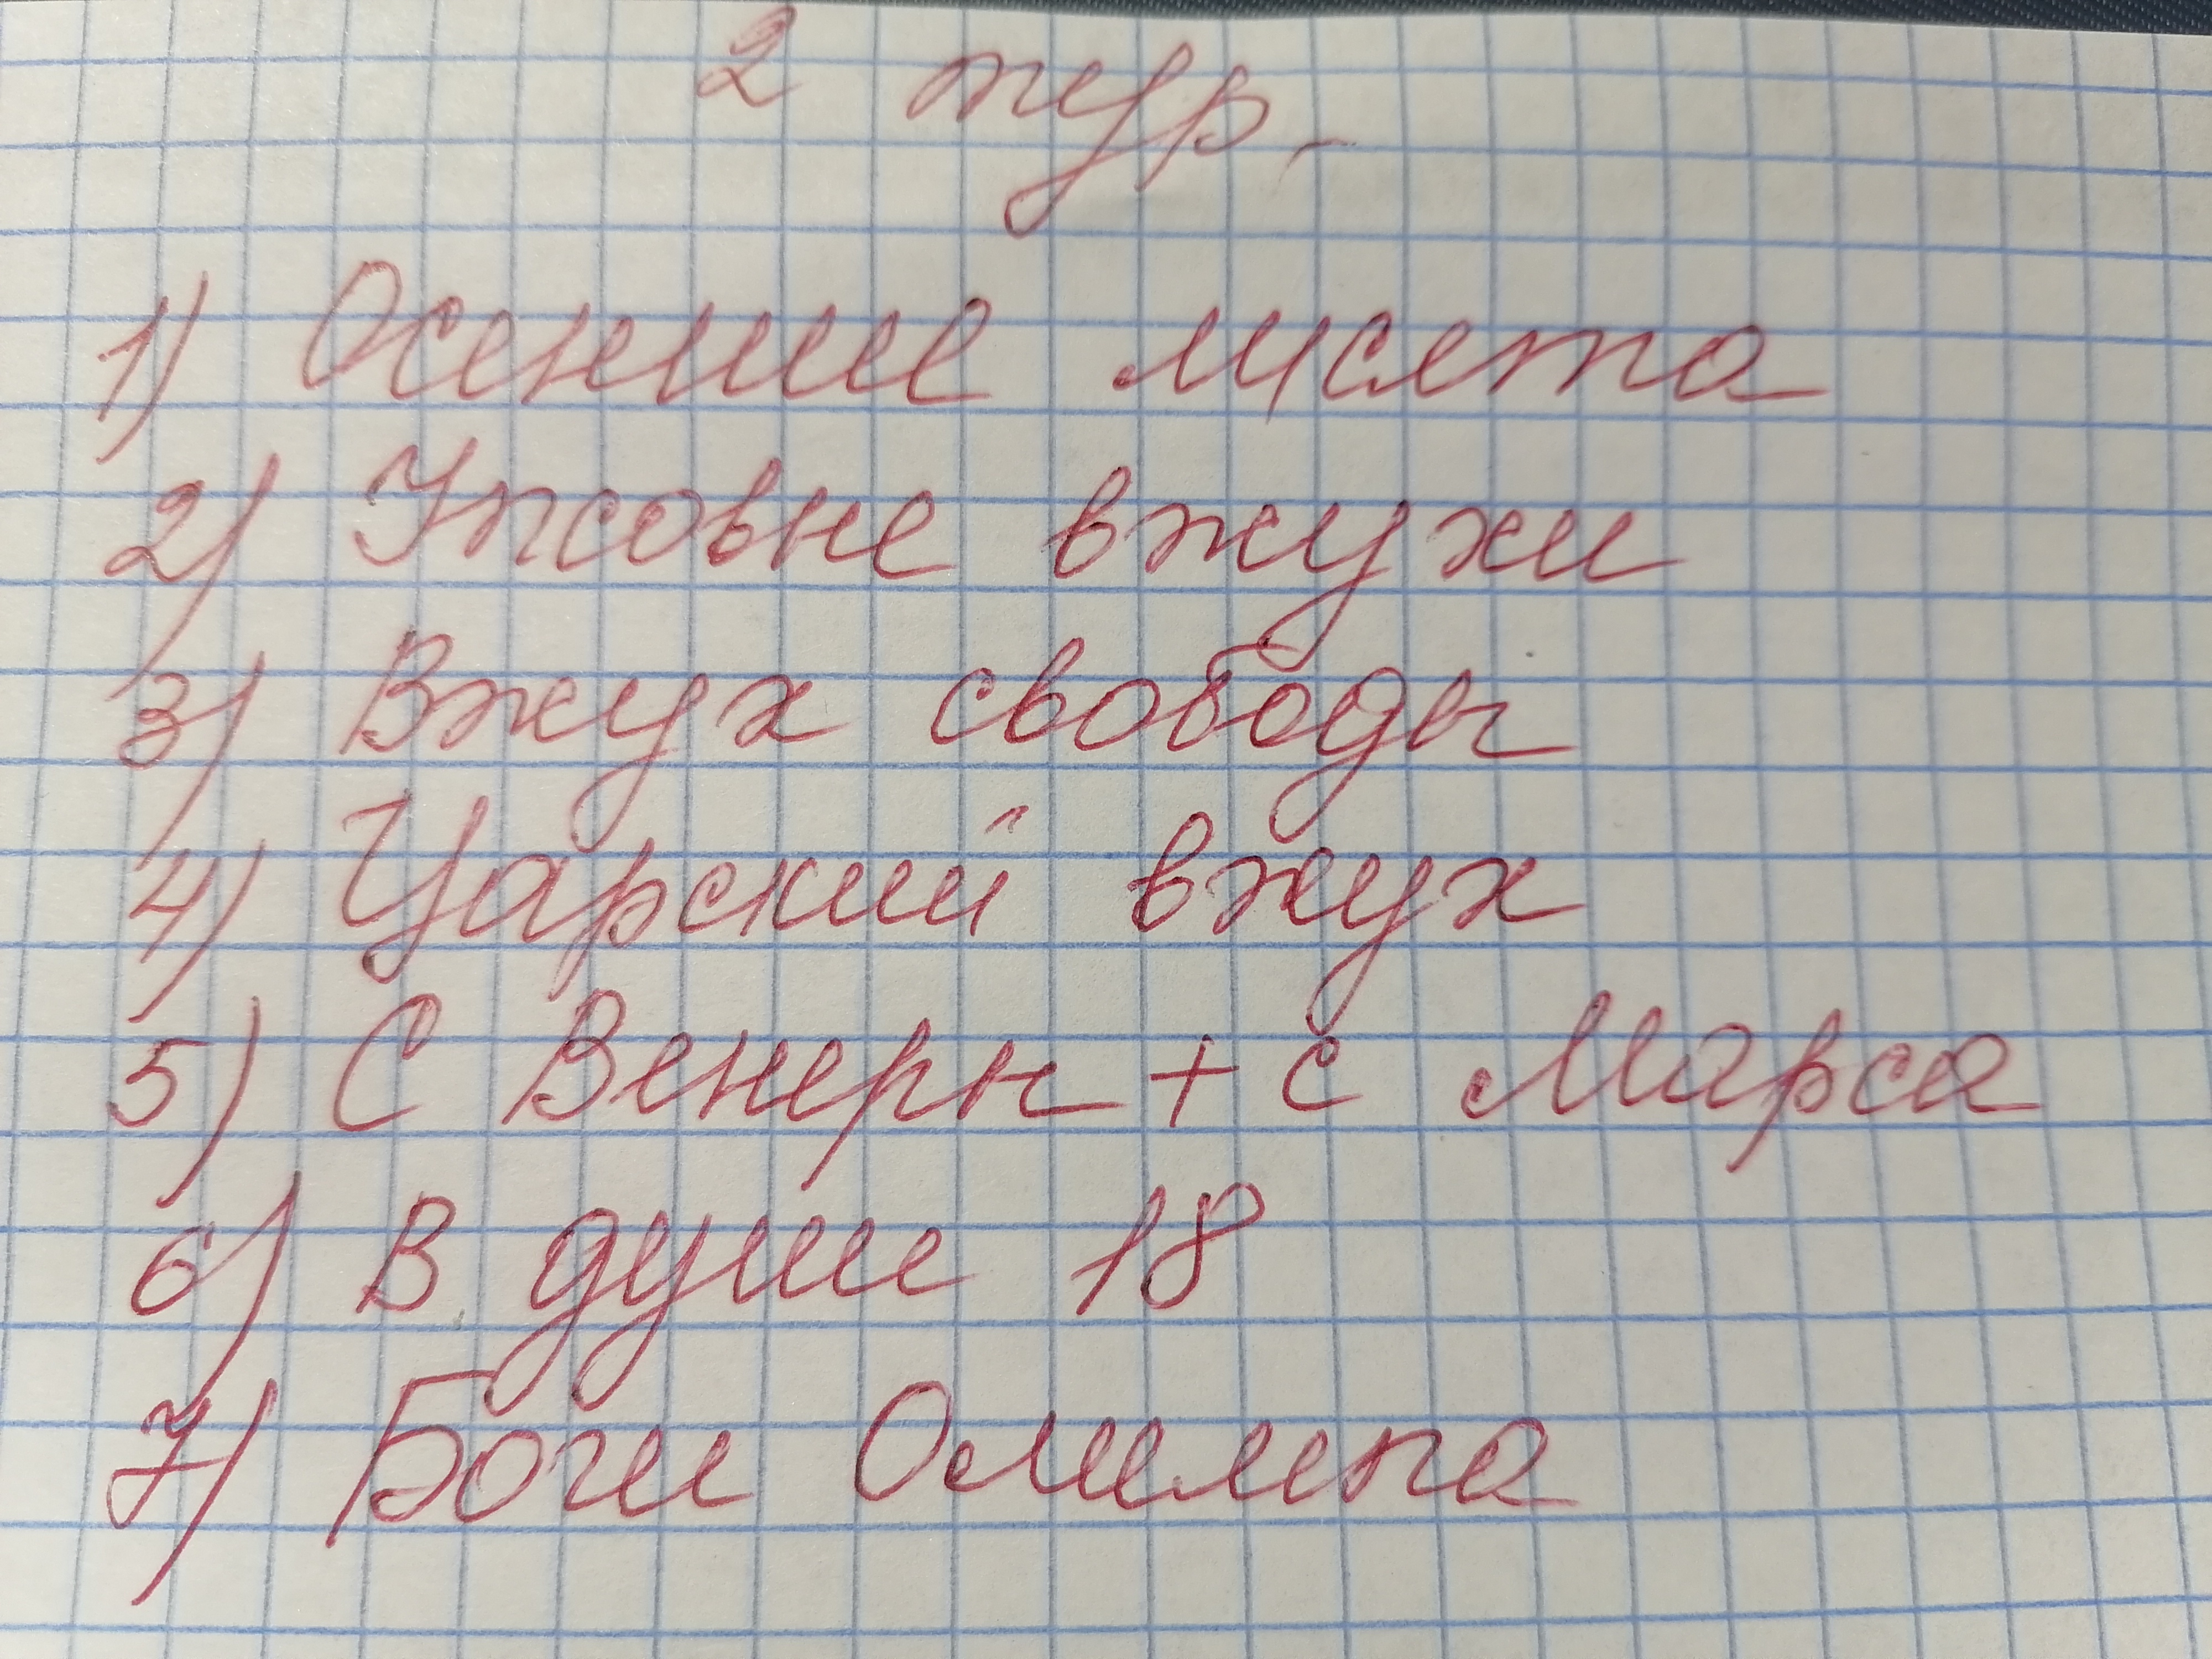 2 тур.
1) Осенние лисята
2) Упсовые вжухи
3) Вжух свободы
4) Царский вжух
5) С Венеры + с Марса
6) В душе 18
7) Боги Олимпа